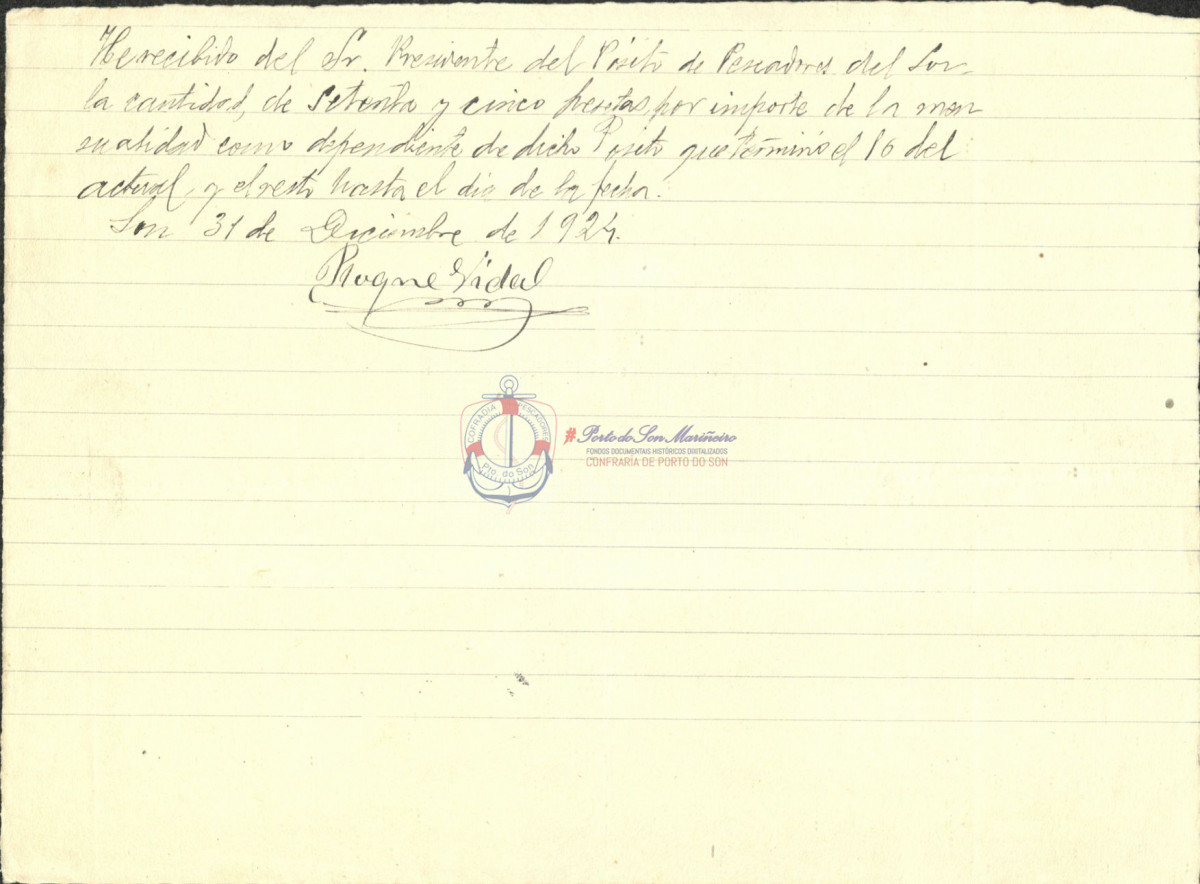 He recibido del Sr. Presidente del Pósito de Pescadores del Son
la cantidad, de setenta y cinco pesetas, por importe de la men
sualidad como dependiente de dicho Posito que terminó el 16 del
actual, y el resto hasta el día de la fecha.
Son 31 de Diciembre de 1924.
Roque Vidal
COFRADIA PESCADORES
Pto. do Son
#Porto do Son Mariñeiro
FONDOS DOCUMENTAIS HISTÓRICOS DIXITALIZADOS
CONFRARÍA DE PORTO DO SON